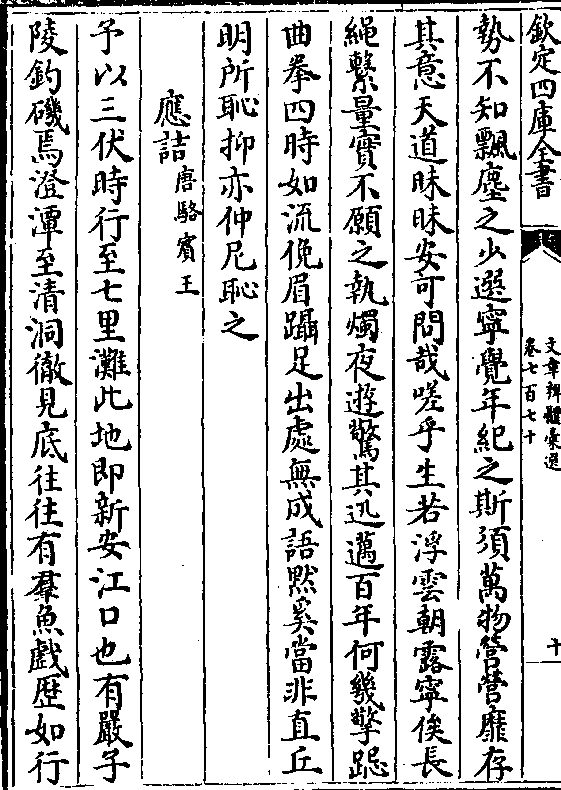 欽定四庫全書
文章辨體彙選
卷七百七十
十
勢不知飄塵之少選寧覺年紀之斯須萬物營營靡存
其意天道昧昧安可問哉嗟乎生若浮雲朝露寧俟長
繩繫量實不願之執燭夜遊驚其迅邁百年何幾擎跽
曲拳四時如流俛眉躡足出處無成語黙奚當非直丘
明所恥抑亦仲尼恥之
應詰唐駱賓王
予以三伏時行至七里灘此地即新安江口也有嚴子
陵釣磯焉澄潭至清洞徹見底往往有羣魚戲歴如行